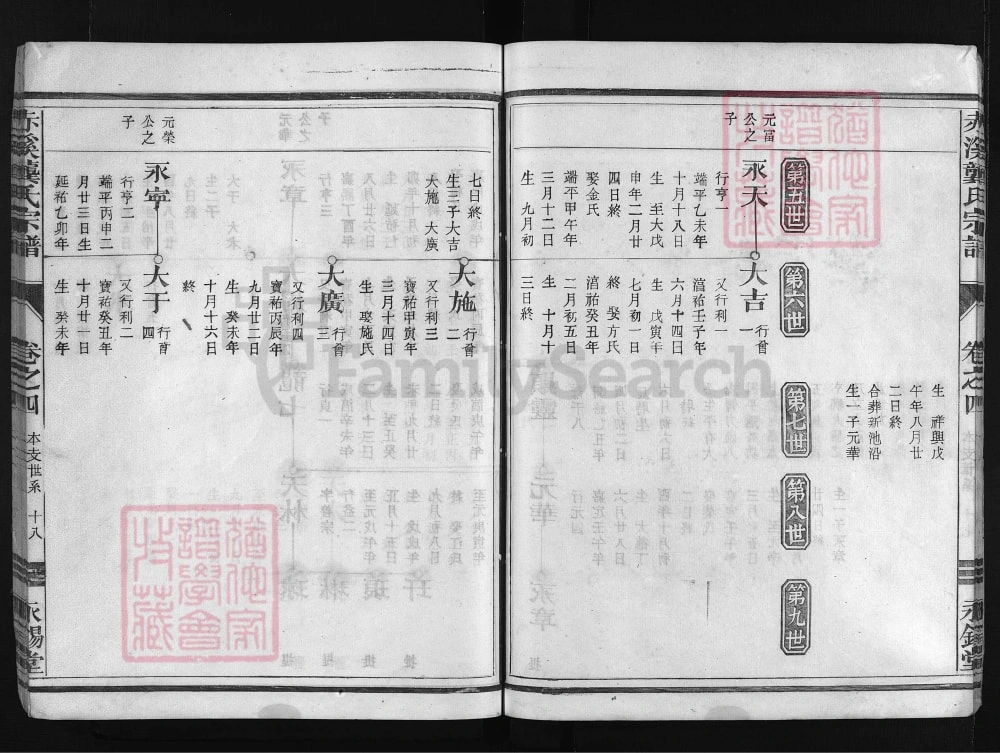 赤溪龔氏宗譜
卷之四
永錫堂
生 祥興戊
午年八月廿
二日終
合葬新池沿
生一子元華
第五世
第六世
第七世
第八世
第九世
元富
公之
子
永天
行亨一
端平乙未年
十月十八日
生 至大戊
申年二月廿
四日終
娶金氏
端平甲午年
三月十二日
生 九月初
七日終
生三子大吉
大施 大廣
大吉
行曾
一
又行利一
淯祐壬子年
六月十四日
生 戊寅年
七月初一日
終 娶方氏
淯祐癸丑年
二月初五日
生 十月十
三日終
大施
行曾
二
又行利三
寶祐甲寅年
三月十四日
生 娶施氏
大廣
行曾
三
又行利四
寶祐丙辰年
九月廿二日
生 癸未年
十月十六日
終
元榮
公之
子
永寜
行亨二
端平丙申二
月廿三日生
延祐乙卯年
大于
行曾
四
又行利二
寶祐癸丑年
十月廿一日
生 癸未年
赤溪龔氏宗譜
卷之四
本支世系 十八
永錫堂
猶他家
譜學會
收藏
FamilySearch